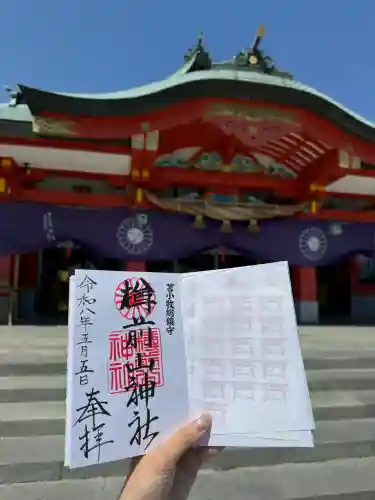 苫小牧総鎮守
樽前山神社
令和八年五月五日
奉拝